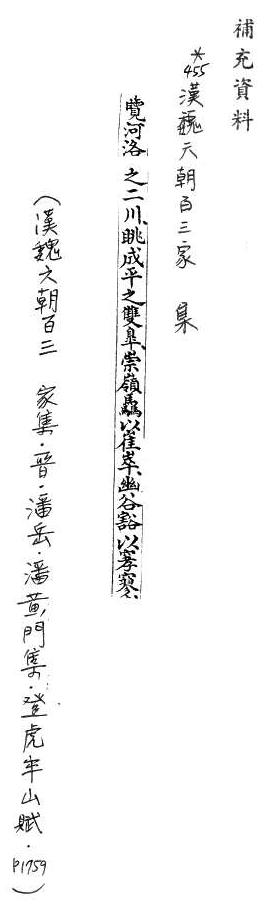 補充資料
*455 漢魏六朝百三家 集
覽河洛之二川、眺成平之雙皐、崇嶺驫以崔崒、幽谷豁以寥寥、
(漢魏六朝百三 家集·晉·潘岳·潘黃門集·登虎牢山賦·P1759)